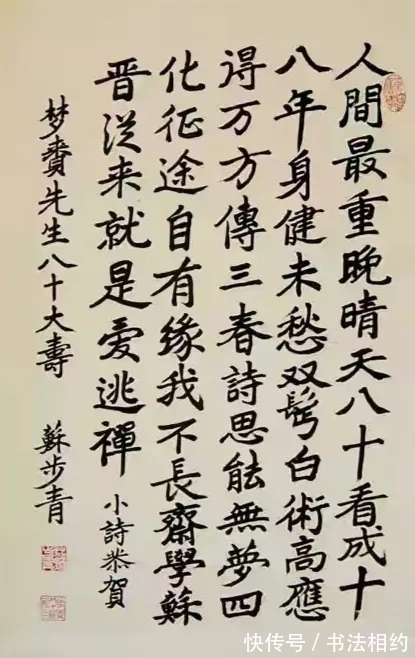 人間最重晚晴天八十看成十
八年身健未愁双髩白術高應
得万方傳三春詩思能無夢四
化征途自有緣我不長齋學蘇
晋従来就是爱逃禪 小詩恭賀
梦賚先生八十大壽 蘇步青
快传号 / 书法相约